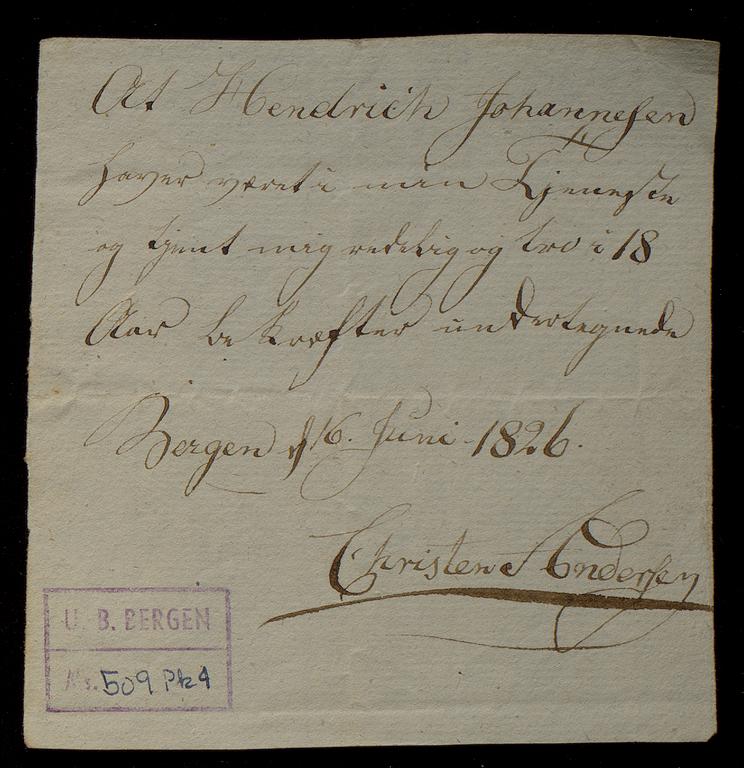 At Hendrich Johannesen
haver været i min Tjeneste
og tjent mig redelig og tro i 18
Aar bekræfter undertegnede
Bergen d 16. Juni 1826.
Christen Andersen
U. B. BERGEN
Ms. 509 Pk 4